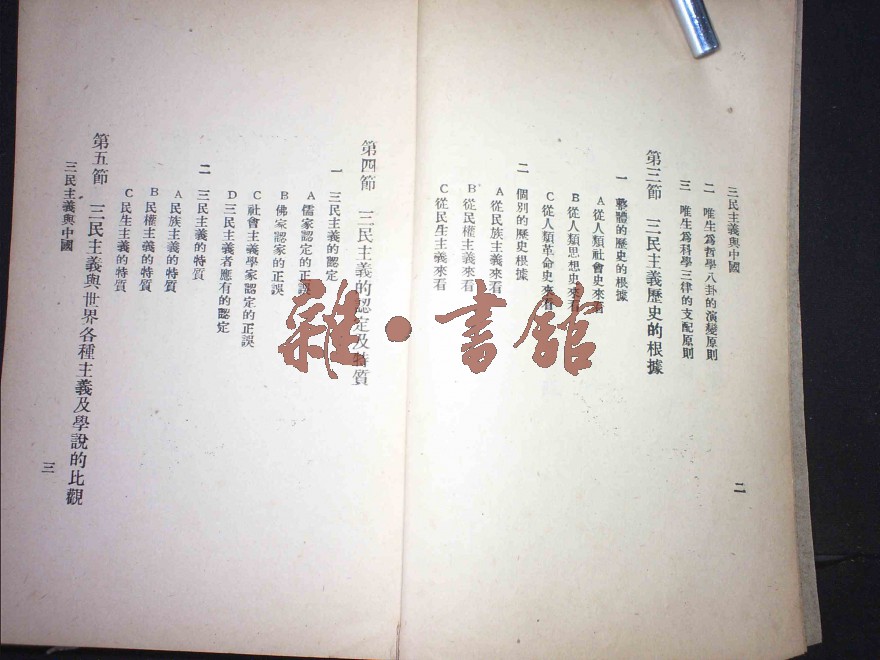 三民主義與中國
二 唯生為哲學八卦的演變原則
三 唯生為科學三律的支配原則
第三節 三民主義歷史的根據
一 整體的歷史的根據
A 從人類社會史來看
B 從人類思想史來看
C 從人類革命史來看
二 個別的歷史根據
A 從民族主義來看
B 從民權主義來看
C 從民生主義來看
二
第四節 三民主義的認定及特質
一 三民主義的認定
A 儒家認定的正誤
B 佛家認家的正誤
C 社會主義學家認定的正誤
D 三民主義者應有的認定
二 三民主義的特質
A 民族主義的特質
B 民權主義的特質
C 民生主義的特質
第五節 三民主義與世界各種主義及學說的比觀
三民主義與中國
三
雜·書館